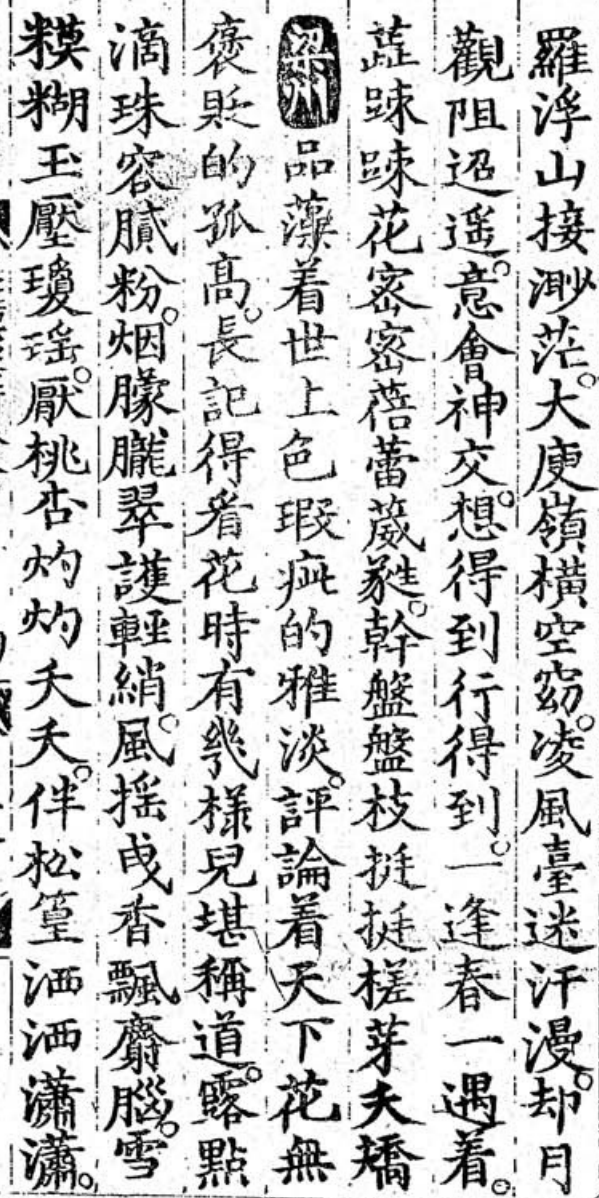 羅浮山接渺茫。大庾嶺橫空窈。凌風臺迷汗漫。却月
觀阻迢遥。意會神交。想得到行得到。一逢春一遇着。
蕋踈踈花密密蓓蕾葳蕤。幹盤盤枝挺挺槎芽夭矯
梁州品藻着世上色瑕疵的雅淡。評論着天下花無
褒貶的孤高。長記得看花時有幾樣兒堪稱道。露點
滴珠容膩粉。烟朦朧翠護輕綃。風揺曵香飄麝腦。雪
糢糊玉壓瓊瑶。厭桃杏灼灼夭夭。伴松篁洒洒瀟瀟。